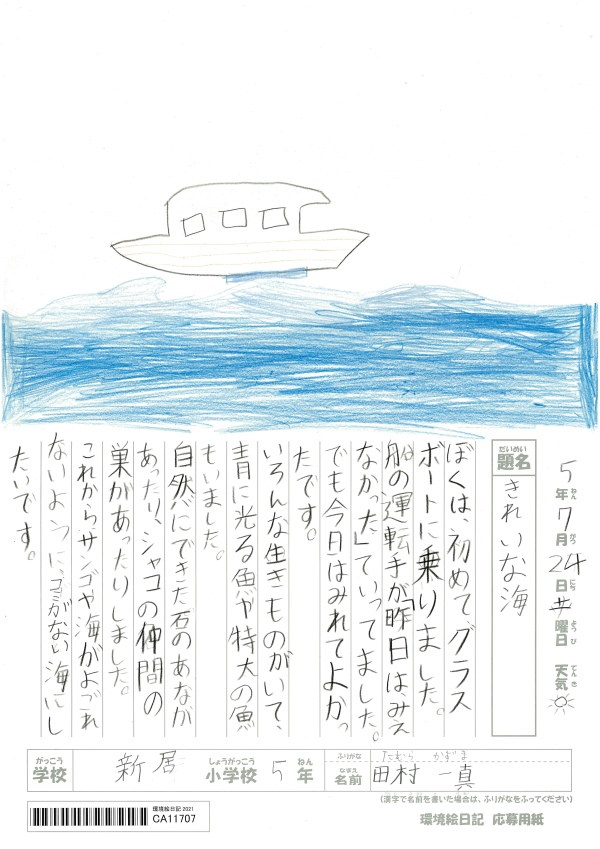 5年ねん7月がつ24日にち 曜日ようび 天気てんき
題名だいめい きれいな海
ぼくは、初めてグラス
ボートに乗りました。
船の運転手が「昨日は、みえ
なかった」ていってました。
でも今日はみれてよかっ
たです。
いろんな生きものがいて、
青に光る魚や特大の魚
もいました。
自然にできた石のあなが
あったり、シャコの仲間の
巣があったりしました。
これからサンゴや海がよごれ
ないように、ゴミがない海にし
たいです。
学校がっこう 新居 小学校しょうがっこう 5年ねん
ふりがな たむら かずま
名前なまえ 田村 一真
(漢字で名前を書いた場合は、ふりがなをふってください)
環境絵日記 応募用紙
環境絵日記 2021
CA11707